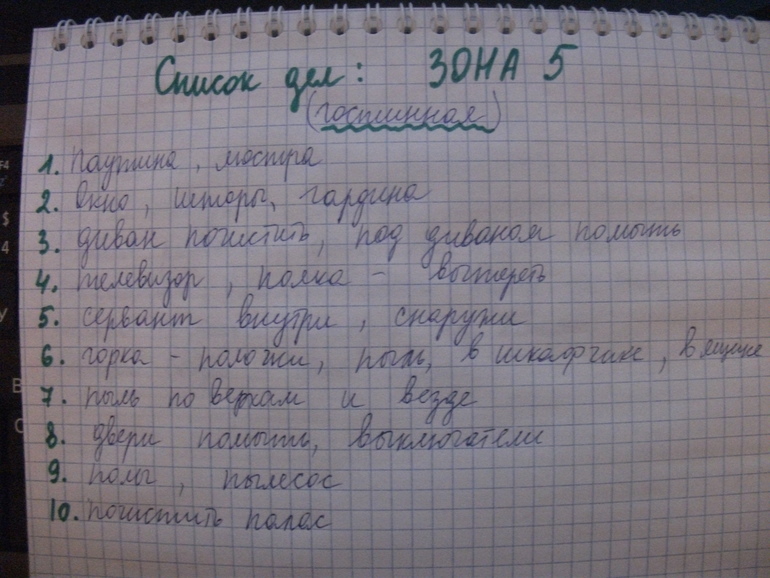 Список дел: ЗОНА 5
(гостинная)
1. Паутина, люстра
2. Окно, шторы, гардина
3. диван почистить, под диваном помыть
4. телевизор, полка - вытереть
5. сервант внутри, снаружи
6. горка - полочки, пыль, в шкафчике, в ящике
7. пыль по верхам и везде
8. двери помыть, выключатели
9. полы, пылесос
10. Почистить палас